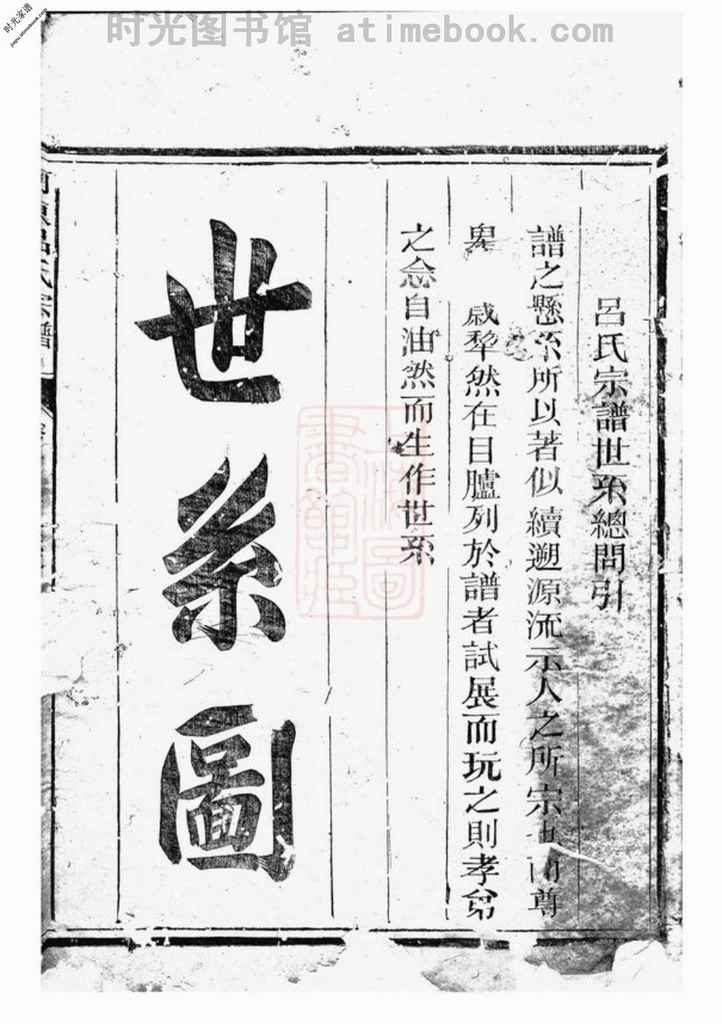 时光图书馆 atimebook.com
时光家谱
呂氏宗譜世系總問引
譜之懸系所以著似續遡源流示人之所宗也 尊
卑 咸犂然在目臚列於譜者試展而玩之則孝弟
之念自油然而生作世系
世系圖
呂氏宗譜